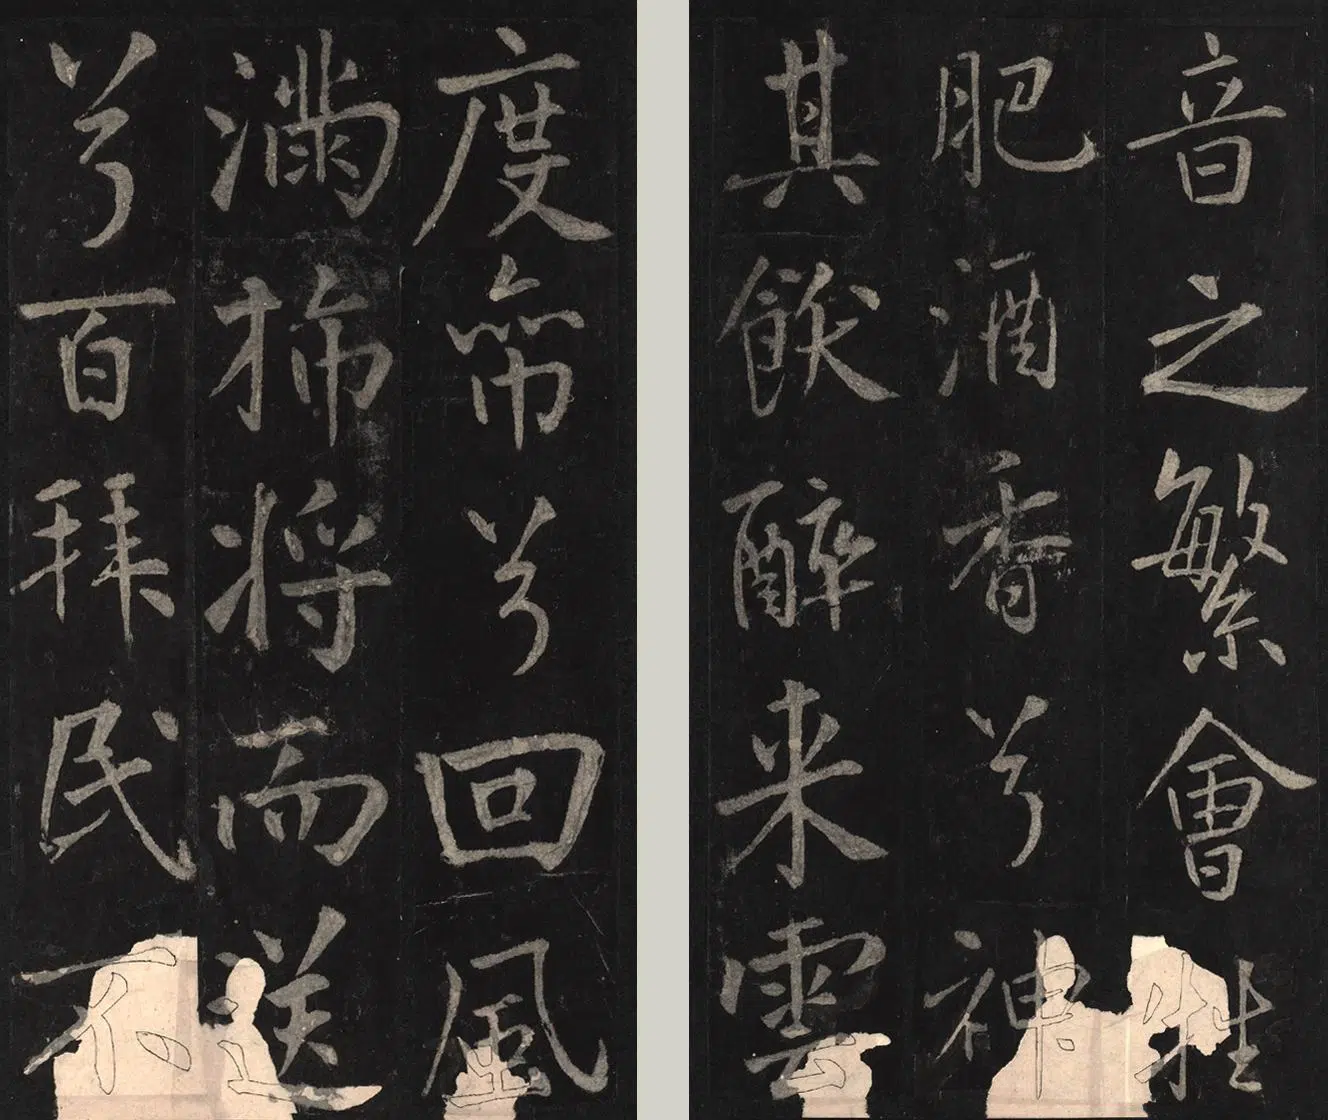 音之繁會牲
肥酒香兮神
其飫醉来雲
度帟兮回風
滿旆将而送
兮百拜民不